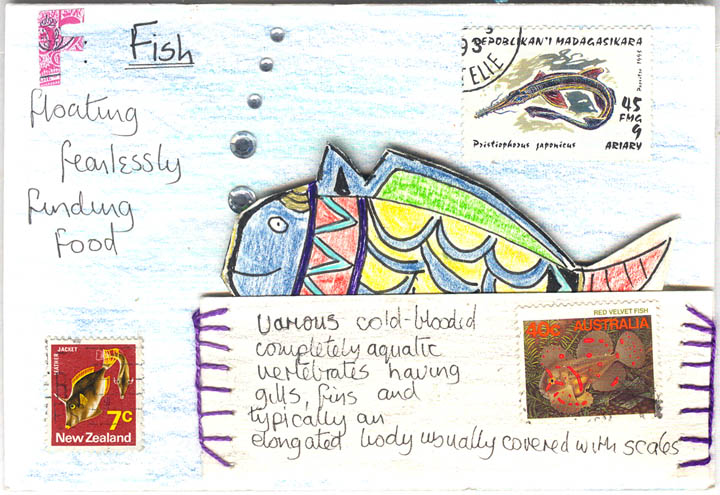 F : Fish
floating
fearlessly
finding
food
93
ELLE
REPOBLIKAN'I MADAGASIKARA
45
FMG
9
ARIARY
Pristiophorus japonicus
various cold-blooded
completely aquatic
vertebrates having
gills, fins and
typically an
elongated body usually covered with scales
RED VELVET FISH
40c AUSTRALIA
LEATHER JACKET
7c
New Zealand